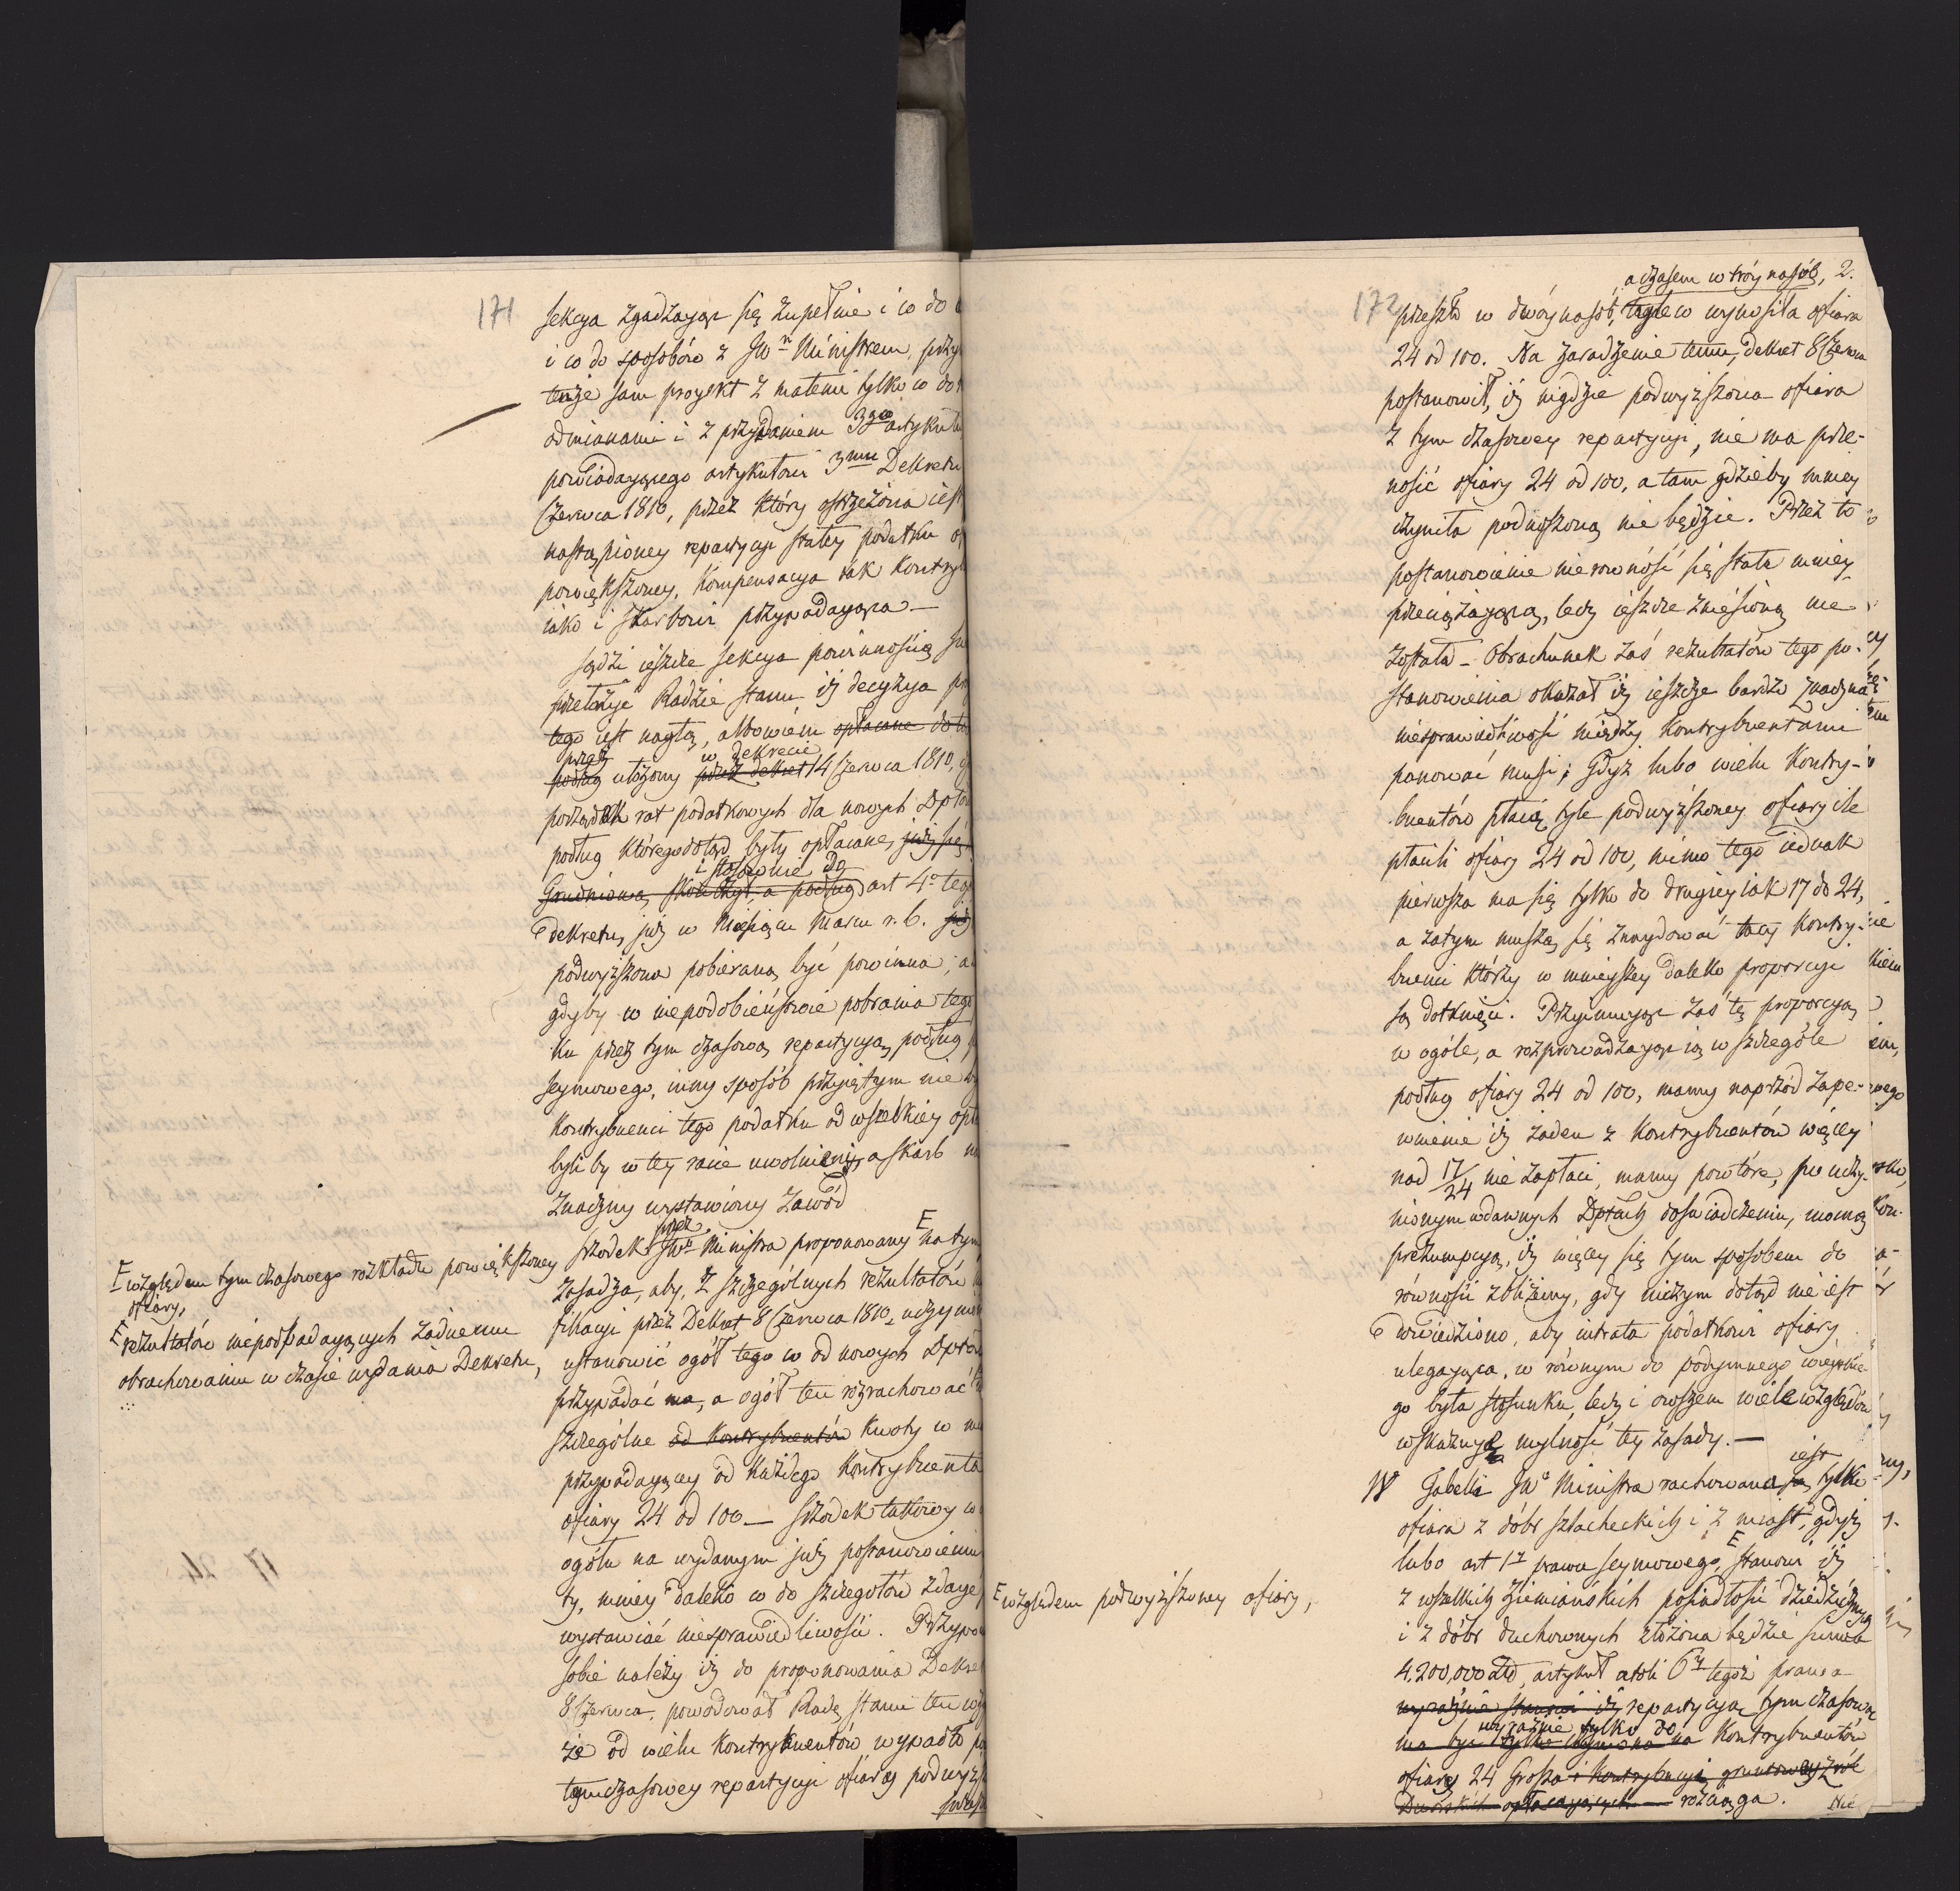 171
sekcya zgadzaiąc się zupełnie i co do
i co do sposobów z JW Ministrem, przy
tenże sam proiekt z małemi tylko co do
odmianami i z przydaniem 3go artykułu
powiadaiącego artykułowi 3mu Dekretu
Czerwca 1810, przez który ostrzeżona iest
nastąpioney repartycyi stałey podatku
powiększoney, kompensacya tak kontry
iako i skarbowi przypadaiąca —
sądzi ieszcze sekcya powinnością
przełożyć Radzie stanu iż decyzya
tego iest nagłą, albowiem opłacane
przez w dekrecie
podług ułożony przez dekret 14 Czerwca 1810,
porządek rat podatkowych dla nowych Dptów
podług którego dotąd były opłacane, już się
i stosownie do
Grudniową skończył, a podług art 4o tego
dekretu, już w Miesiącu Marcu r. b. już
podwyższona pobieraną być powinna,
gdyby w niepodobieństwie pobrania tego
ku przez tymczasową repartycyą podług
seymowego, inny sposób przyiętym nie
kontrybuenci tego podatku od wszelkiey
byliby w tey racie uwolnieni, a skarb
znaczny wystawiony zawód
przez
srzodek JW Ministra proponowany na tym
zasadza, aby, z szczególnych rezultatów
fikacyi przez Dekret 8 Czerwca 1810
ustanowić ogół tego co od nowych Dptów
przypadać ma, a ogół ten rozrachować
szczególne od kontrybuentów kwoty w
przypadaiącey od każdego kontrybuenta
ofiary 24 od 100 — srzodek takowy
ogółu na wydanym już postanowieniu
ty, mniey daleko co do szczegółów zdaie
wystawiać niesprawiedliwości.
sobie należy iż do proponowania Dekretu
8 Czerwca, powodował Radę stanu ten
że od wielu kontrybuentów wypadło
tymczasowey repartycyi ofiary
względem tymczasowego rozkładu powiększoney
ofiary,
rezultatów niepodpadaiących żadnemu
obrachowaniu w czasie wydania Dekretu,
172
a czasem w tróynasób, 2.
przeszło w dwóynasób, tyle co wynosiła ofiara
24 od 100. Na zaradzenie temu, Dekret 8 Czerwca
postanowił, iż nigdzie podwyższona ofiara
z tymczasowey repartycyi, nie ma prze-
nosić ofiary 24 od 100, a tam gdzieby mniey
czyniła podnoszoną nie będzie. Przez to
postanowienie nierówność się stała mniey
przeciążaiącą, lecz ieszcze zniesioną nie
została — Obrachunek zaś rezultatów tego po-
stanowienia okazał iż ieszcze bardzo znaczna
niesprawiedliwość między kontrybuentami
panować musi; Gdyż lubo wielu kontry-
buentów płacą tyle podwyższoney ofiary ile
płacili ofiary 24 od 100, mimo tego iednak
pierwsza ma się tylko do drugiey iak 17 do 24,
a zatym muszą się znaydować tacy kontry-
buenci którzy w mnieyszey daleko proporcyi
są dotknięci. Przyimuiąc zaś tę proporcyą
w ogóle, a rozprowadzaiąc ią w szczególe
podług ofiary 24 od 100, mamy naprzód zape-
wnienie iż żaden z kontrybuentów więcey
nad 17/24 nie zapłaci, mamy powtóre, po uczy-
nionym w dawnych Dptach doświadczeniu, mocną
prezumpcyą, iż więcey się tym sposobem do
równości zbliżemy, gdy niczym dotąd nie iest
dowiedziono, aby intrata podatkowi ofiary
ulegaiąca, w równym do podymnego wieyskie-
go była stosunku, lecz i owszem wiele względów
wskazuye mylność tey zasady. —
iest
W Tabelli JWo Ministra rachowana są tylko
ofiara z dóbr szlacheckich i z miast, gdyż
lubo art 1y prawa seymowego, stanowi iż
z wszelkich ziemiańskich posiadłości dziedzicznych
i z dóbr duchownych złożona będzie summa
4.200,000 Złp, artykuł atoli 6ty tegoż prawa
wyraźnie stanowi iż repartycyą tymczasową
wyraźnie tylko do
ma być tylko na kontrybuentów
ofiary 24 Grosza i kontrybucyi gruntowey
opłacaiących — rozciąga.
Nie
względem podwyższoney ofiary,